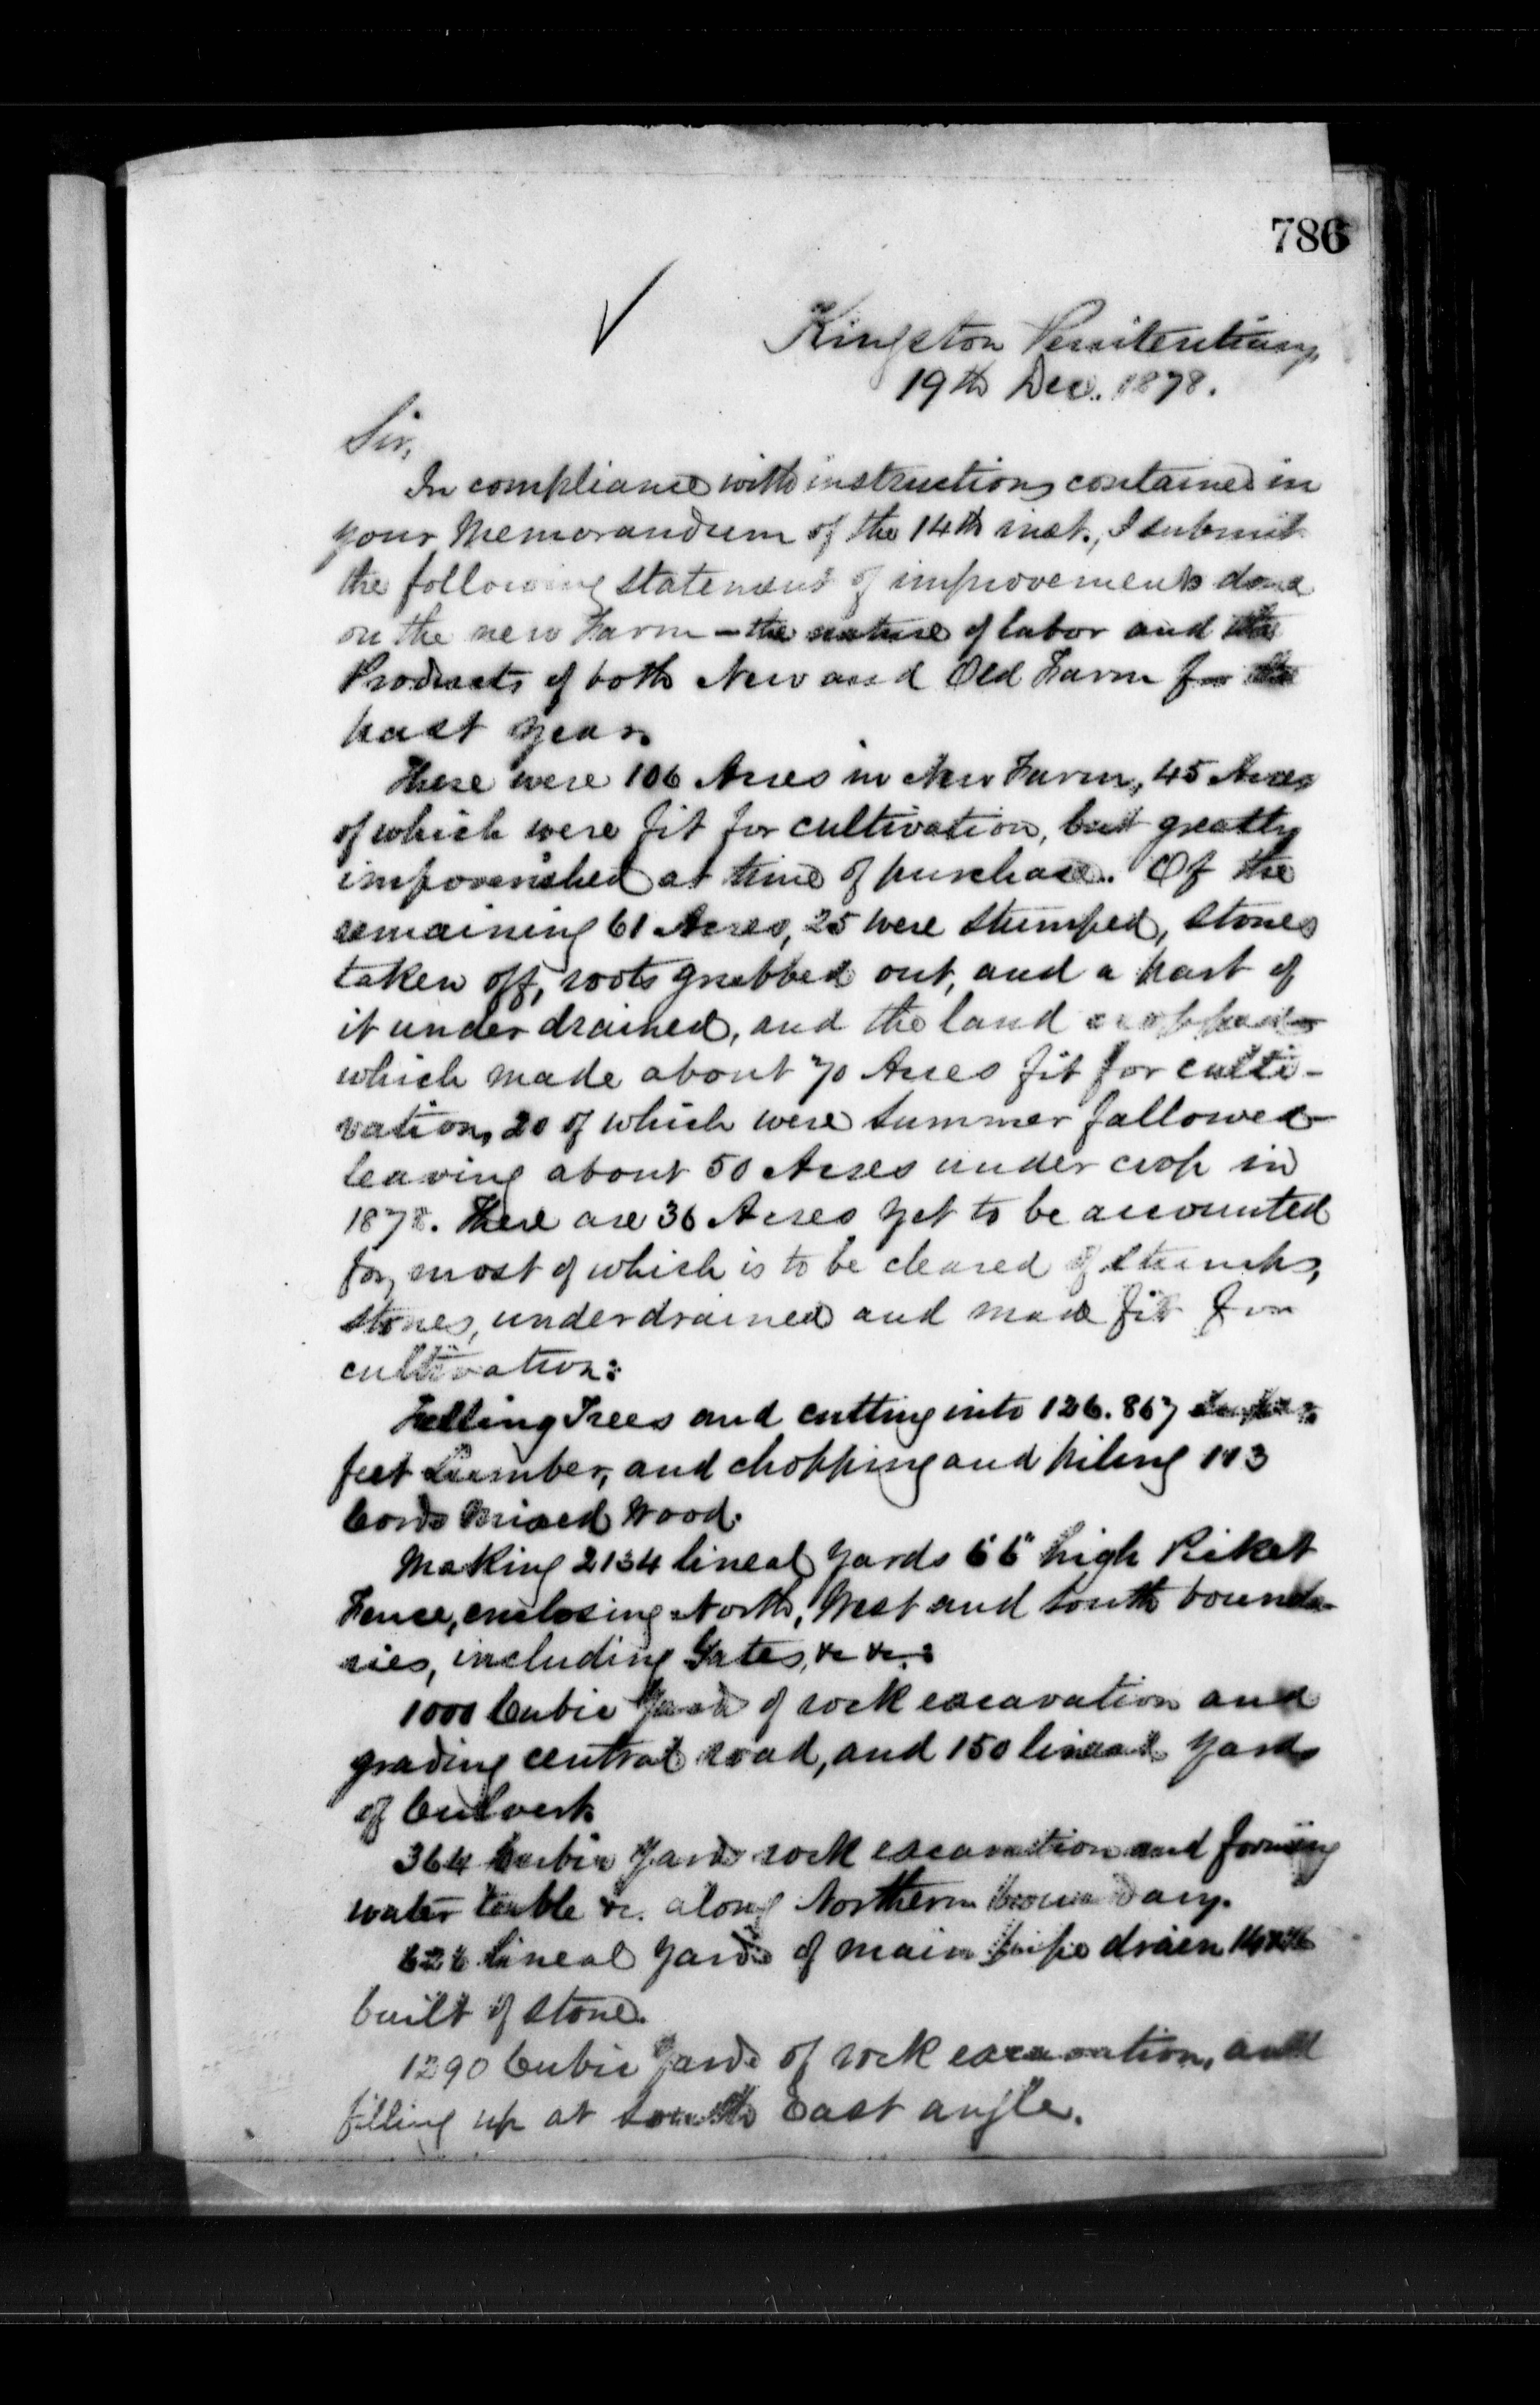 786
Kingston Penitentiary,
19th Dec. 1878.
Sir,
In compliance with instructions contained in
your Memorandum of the 14th inst., I submit
the following statement of improvements done
on the new Farm - the nature of labor and the
Products of both New and Old Farm for the
past year.
There were 106 Acres in New Farm, 45 Acres
of which were fit for cultivation, but greatly
impoverished at time of purchase. Of the
remaining 61 Acres, 25 were stumped, stones
taken off, roots grubbed out, and a part of
it under drained, and the land cropped
which made about 70 Acres fit for culti-
vation, 20 of which were summer fallowed
leaving about 50 Acres under crop in
1878. There are 36 Acres yet to be accounted
for, most of which is to be cleared of stumps,
stones, underdrained and made fit for
cultivation:
Felling Trees and cutting into 126.867
feet Lumber, and chopping and piling 113
Cords Mixed Wood.
Making 2134 lineal yards 6'6" high Picket
Fence, enclosing North, West and South bounda-
ries, including Gates, &c &c.:
1000 Cubic Yards of rock excavation and
grading central road, and 150 lineal yards
of Culvert.
364 Cubic Yards rock excavation and forming
water table &c. along Northern boundary.
626 lineal Yards of main pipe drain
built of stone.
1290 Cubic Yards of rock excavation, and
filling up at South East angle.